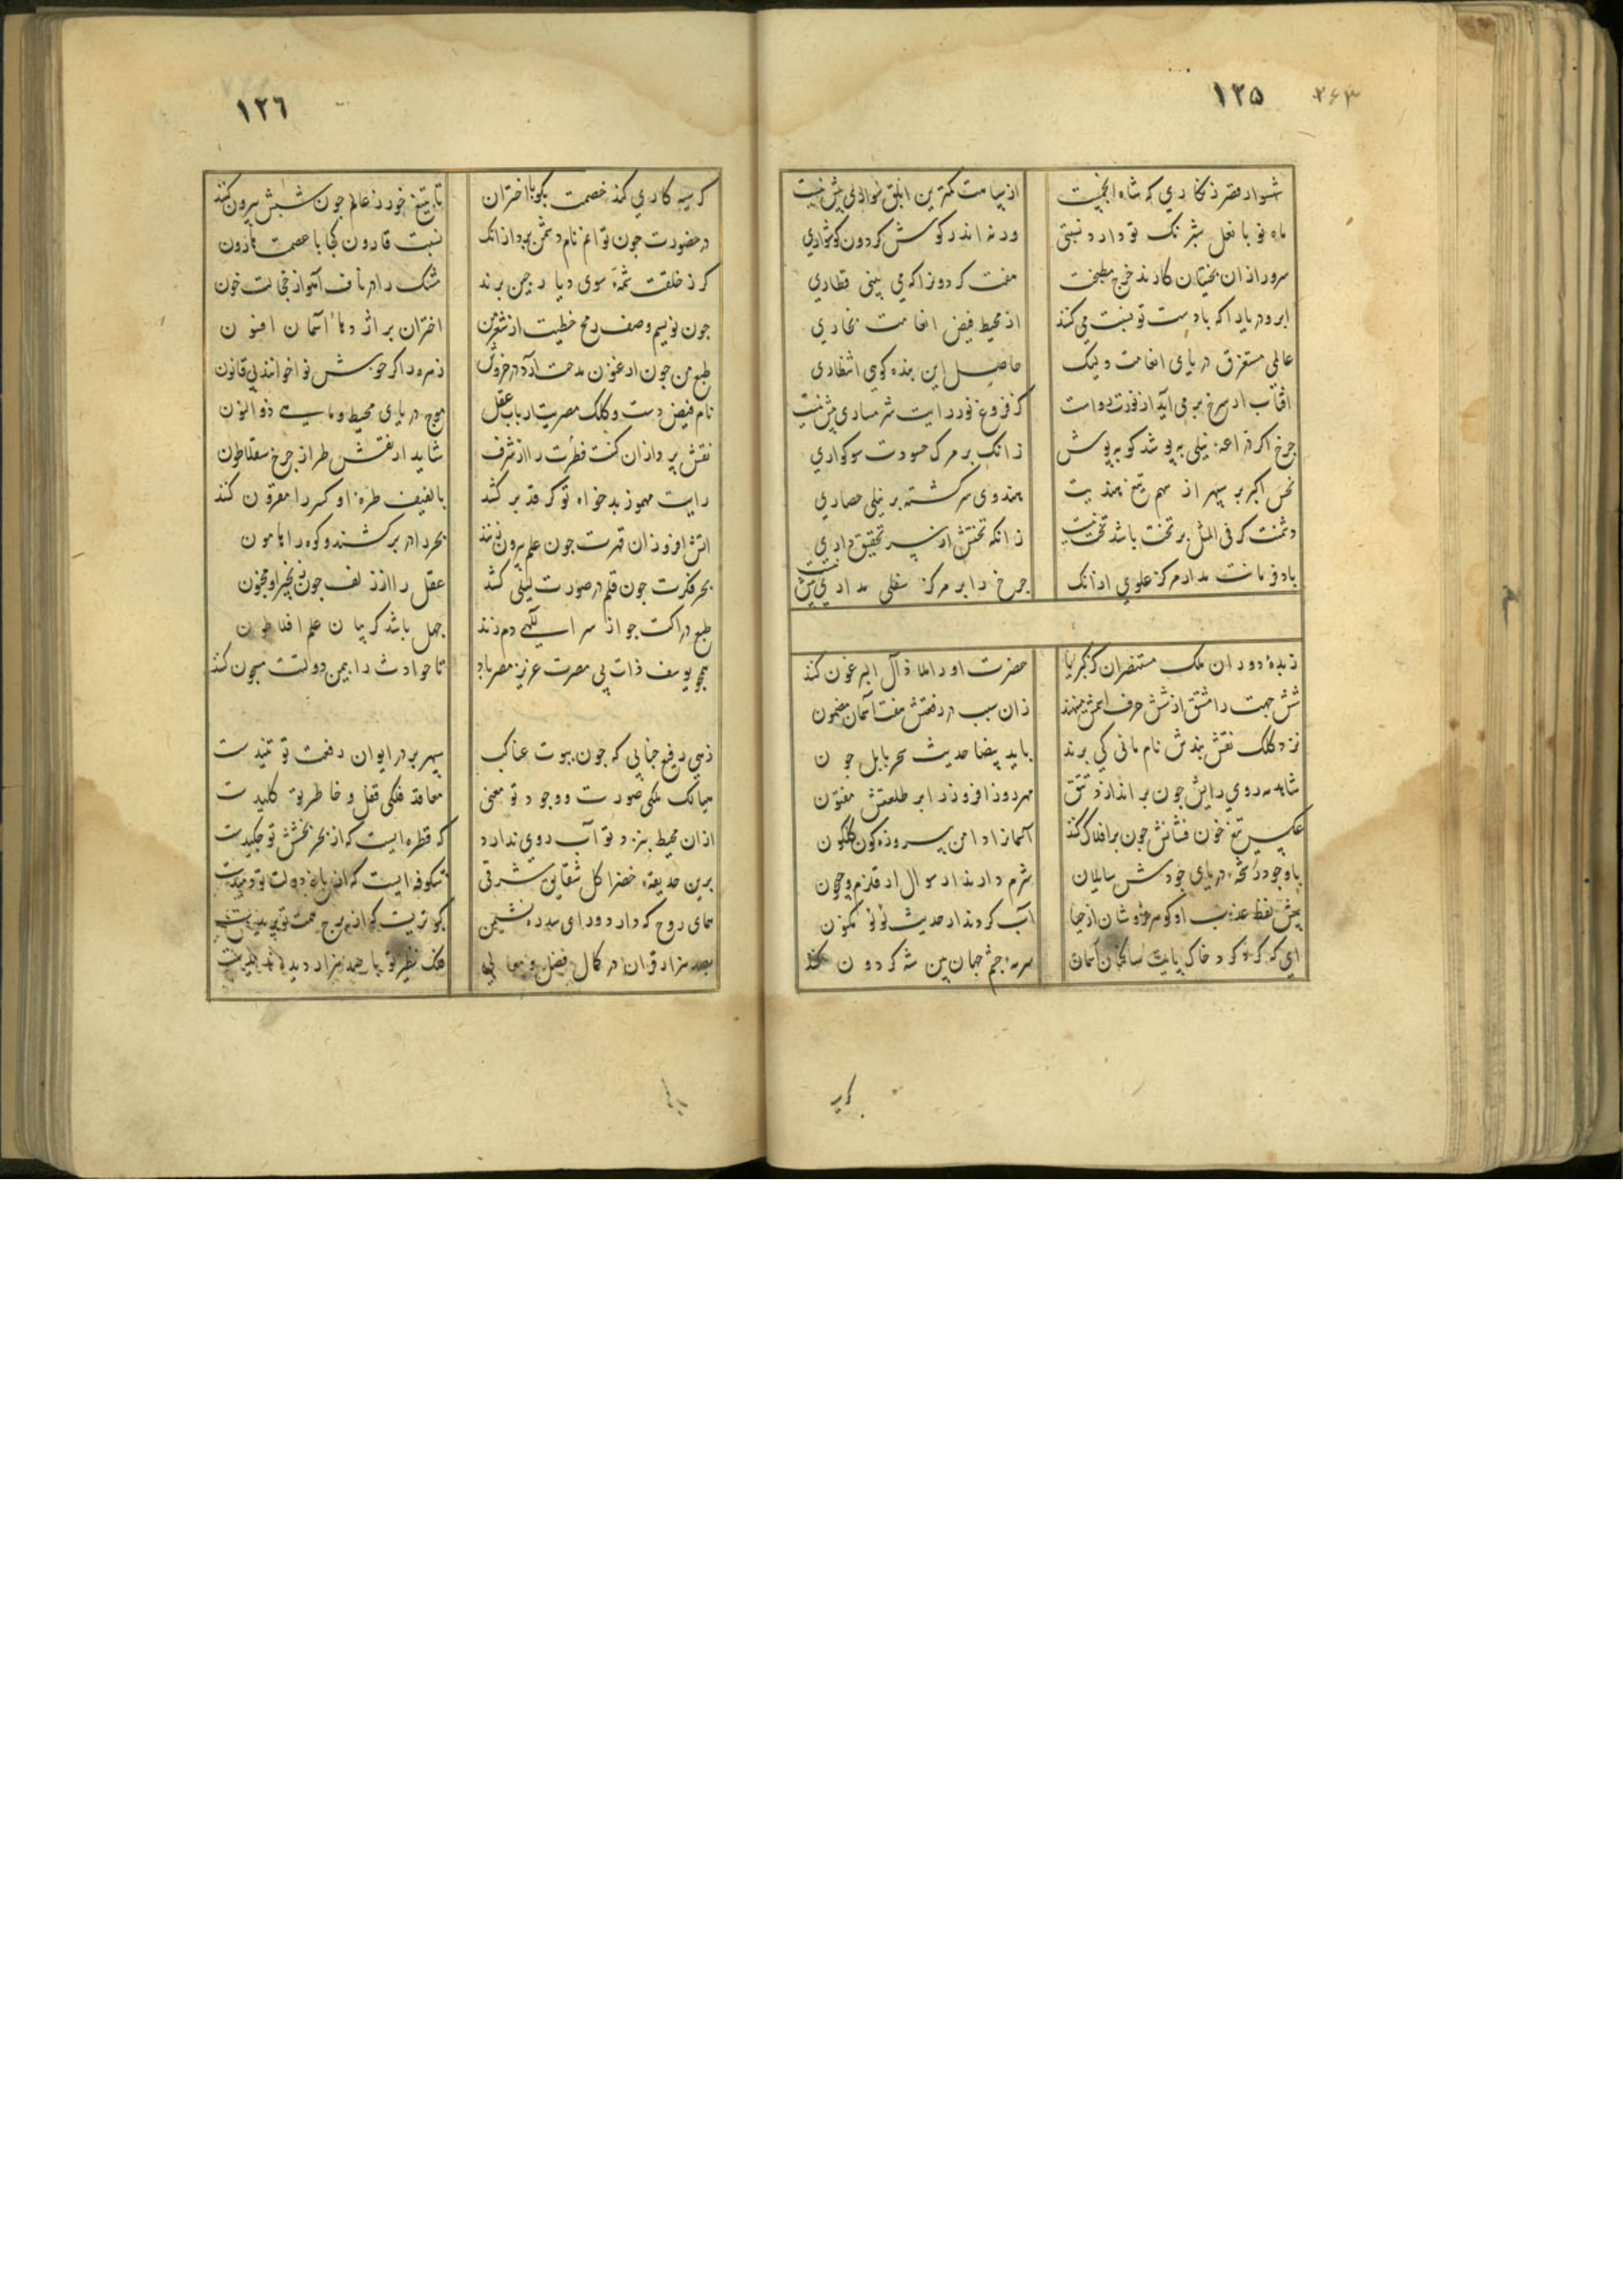 ۱۲۵
۲۶۳
شهسوار قصر زنگاری که شاه انجمست
از سپاهت کمترین ابلق سواری بیش نیست
ماه نو با نعل شبرنگ تو دارد نسبتی
ورنه اندر کوش کردون کوشواری
سرورا زان بختیان کارند خرج مطبخت
هفت کردون را که می بینی قطاری
ابر و دریا را که با دست تو نسبت می کند
از محیط فیض انعامت بخاری
عالمی مستغرق دریای انعامت ولیک
حاصل این بنده کویی انتظاری
افتاب ار سرخ برمی آید از
کز فروغ نور رایت شرمساری بیش نیست
چرخ اکر دراعه نیلی بپوشد کو بپوش
زانک بر مرک حسودت سوکواری
نحس اکبر بر سپهر از سهم تیغ هندیت
هندوی سرکشته بر نیلی حصاری
دشمنت کر فی المثل بر تخت باشد تخت نیست
زانکه تختش از سر تحقیق داری
باد فرمانت مدار مرکز علوی ازانک
چرخ را بر مرکز سفلی مداری بیش نیست
زبدهٔ دوران ملک مستنصران کز کبریا
حضرت او را ملاذ آل البرغون کند
شش جهت را مشتق از شش حرف اسمش مینهند
زان سبب در رفعتش هفت آسمان مضمون
نزد کلک نقش بندش نام مانی کی برند
با ید بیضا حدیث سحر بابل چون
شاهد روی رایش چون براندازد تتق
مهر روز افروز را بر طلعتش مفتون
عکس تیغ خون فشانش چون بر افلاک کند
آسمانرا دامن پیروزه کون کلکون
با وجود رشحه دریای جودش سایلان
شرم دارند ار سوال از قلزم و جیحون
پیش لفظ عذب او کوهر فروشان از حیا
آب کردند ار حدیث لولو مکنون
ای که کرد کرد خاک پایت ساکنان آسمان
سرمه چشم جهان بین شه کردون کند
۱۲۶
کر سیه کاری کند خصمت بکو با اختران
تا بتیغ خور ز عالم چون شبش بیرون کنند
در حضورت چون توانم نام دشمن برد ازانک
نسبت قارون کجا با عصمت هارون
کر ز خلقت شمهٔ سوی دیار چین برند
مشک را در ناف آهو از خجالت خون
چون نویسم وصف رمح خطیت از شعر من
اختران بر اژدهاء آسمان افسون
طبع من چون ارغنون مدحت آرد در خروش
زهره را کر خوش نوا خوانند بی قانون
نام فیض دست و کلک مصریت ارباب عقل
موج دریای محیط و ماهی ذو النون
نقش پردازان کنت فطرت را از شرف
شاید ار نقش طراز چرخ سقلاطون
رایت مهموز بدخواه تو کر قد برکشد
با لفیف طره او کسر را مقرون کند
اتش افروزان قهرت چون علم بیرون زنند
بحر را در بر کشند و کوه را هامون
بحر فکرت چون قلم در صورت لیلی کشد
عقل را از زلف چون زنجیر او مجنون
طبع دراکت چو از سر الهی دم زند
جهل باشد کر بیان علم افلاطون
همچو یوسف ذات بی مصرت عزیز مصر باد
تا حوادث را بیمن دولتت مسجون کند
زهی رفیع جنابی که چون بیوت عناکب
سپهر بر در ایوان رفعت تو تنیدست
میانک ملکی صورت و وجود تو معنی
معاقد فلکی قفل و خاطر تو کلیدست
ازان محیط بنزد تو آب روی ندارد
که قطره ایست که از بحر بخشش تو چکیدست
برین حدیقه خضرا کل شقایق شرقی
شکوفه ایست که از باغ دولت تو دمیدست
همای روح که دارد ورای سدره نشیمن
کبوتریست که از برج همت تو پریدست
بصد هزار قران در کمال فضل و معالی
فلک نظیر تو با صد هزار دیده ندیدست